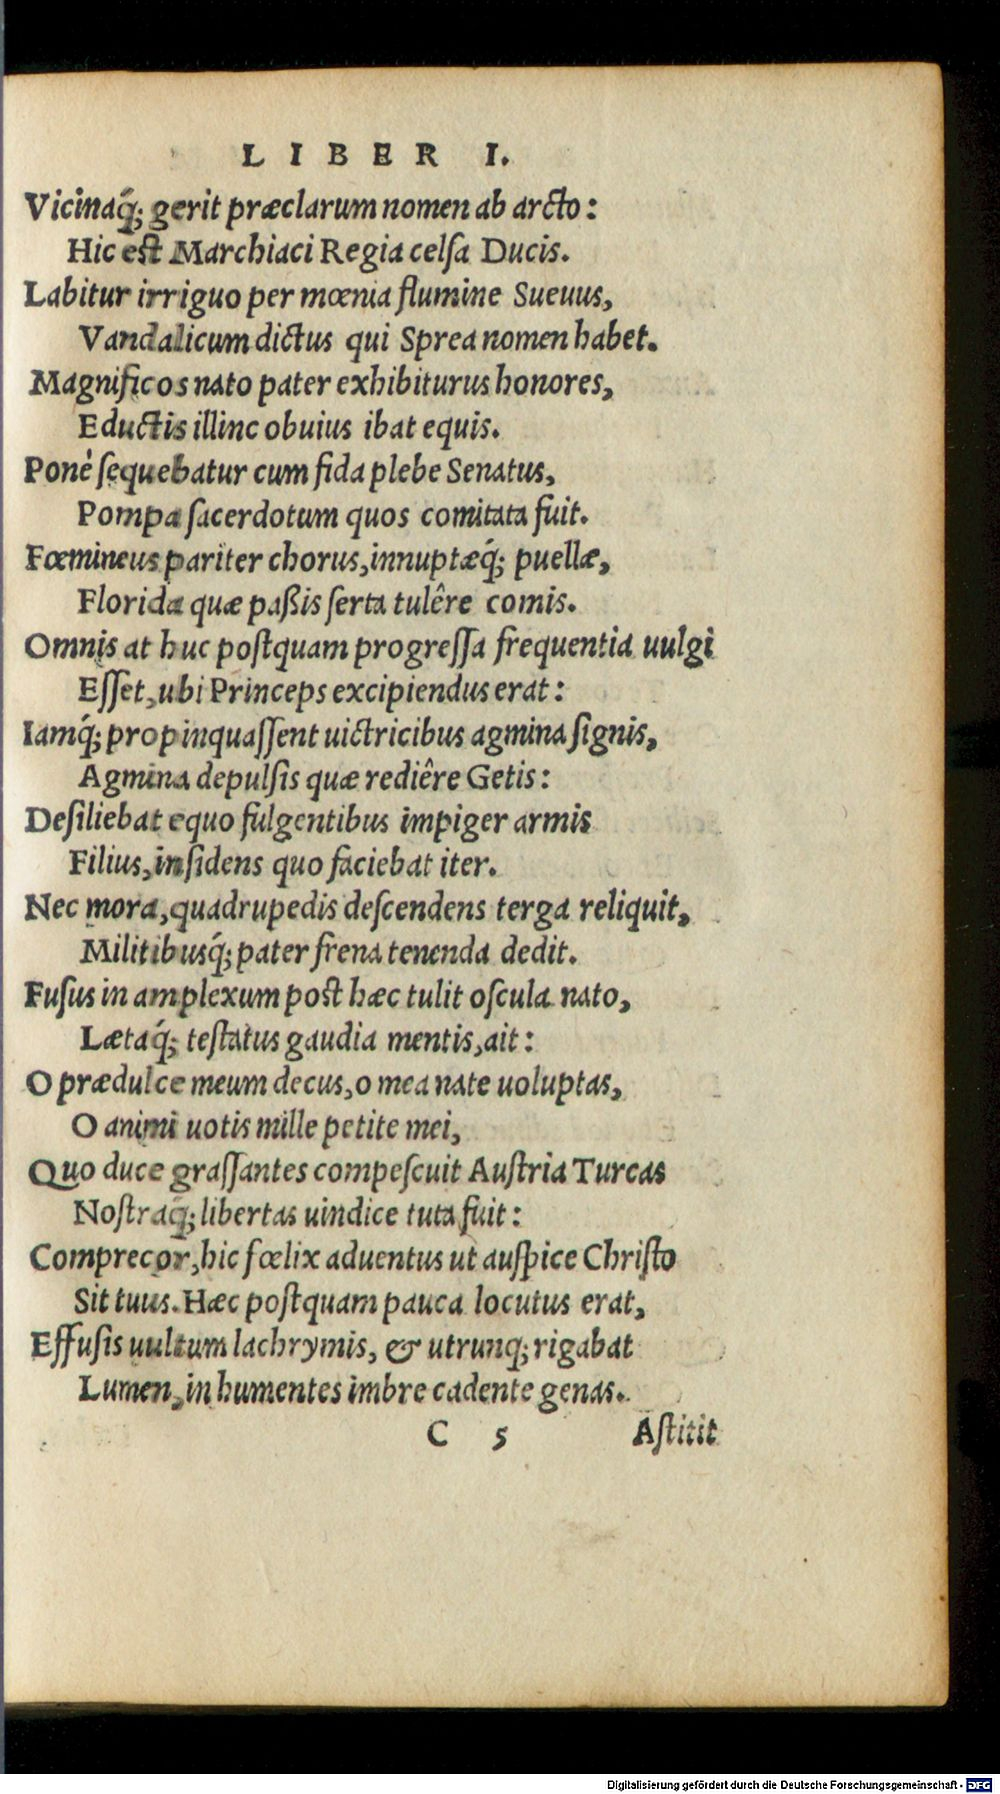 LIBER I.
Vicinaq́; gerit præclarum nomen ab arcto:
Hic est Marchiaci Regia celſa Ducis.
Labitur irriguo per mœnia flumine Sueuus,
Vandalicum dictus qui Sprea nomen habet.
Magnificos nato pater exhibiturus honores,
Eductis illinc obuius ibat equis.
Ponè ſequebatur cum fida plebe Senatus,
Pompa ſacerdotum quos comitata fuit.
Fœmineus pariter chorus, innuptæq́; puellæ,
Florida quæ paßis ſerta tulêre comis.
Omnis at huc poſtquam progreſſa frequentia uulgi
Eſſet, ubi Princeps excipiendus erat:
Iamq́; propinquaſſent uictricibus agmina ſignis,
Agmina depulſis quæ rediêre Getis:
Deſiliebat equo fulgentibus impiger armis
Filius, inſidens quo faciebat iter.
Nec mora, quadrupedis deſcendens terga reliquit,
Militibusq́; pater frena tenenda dedit.
Fuſus in amplexum poſt hæc tulit oſcula nato,
Lætaq́; teſtatus gaudia mentis, ait:
O prædulce meum decus, o mea nate uoluptas,
O animi uotis mille petite mei,
Quo duce graſſantes compeſcuit Auſtria Turcas
Noſtraq́; libertas uindice tuta fuit:
Comprecor, hic fœlix aduentus ut auſpice Chriſto
Sit tuus. Hæc poſtquam pauca locutus erat,
Effuſis uultum lachrymis, & utrunq; rigabat
Lumen, in humentes imbre cadente genas.
C 5 Aſtitit
Digitalisierung gefördert durch die Deutsche Forschungsgemeinschaft - DFG